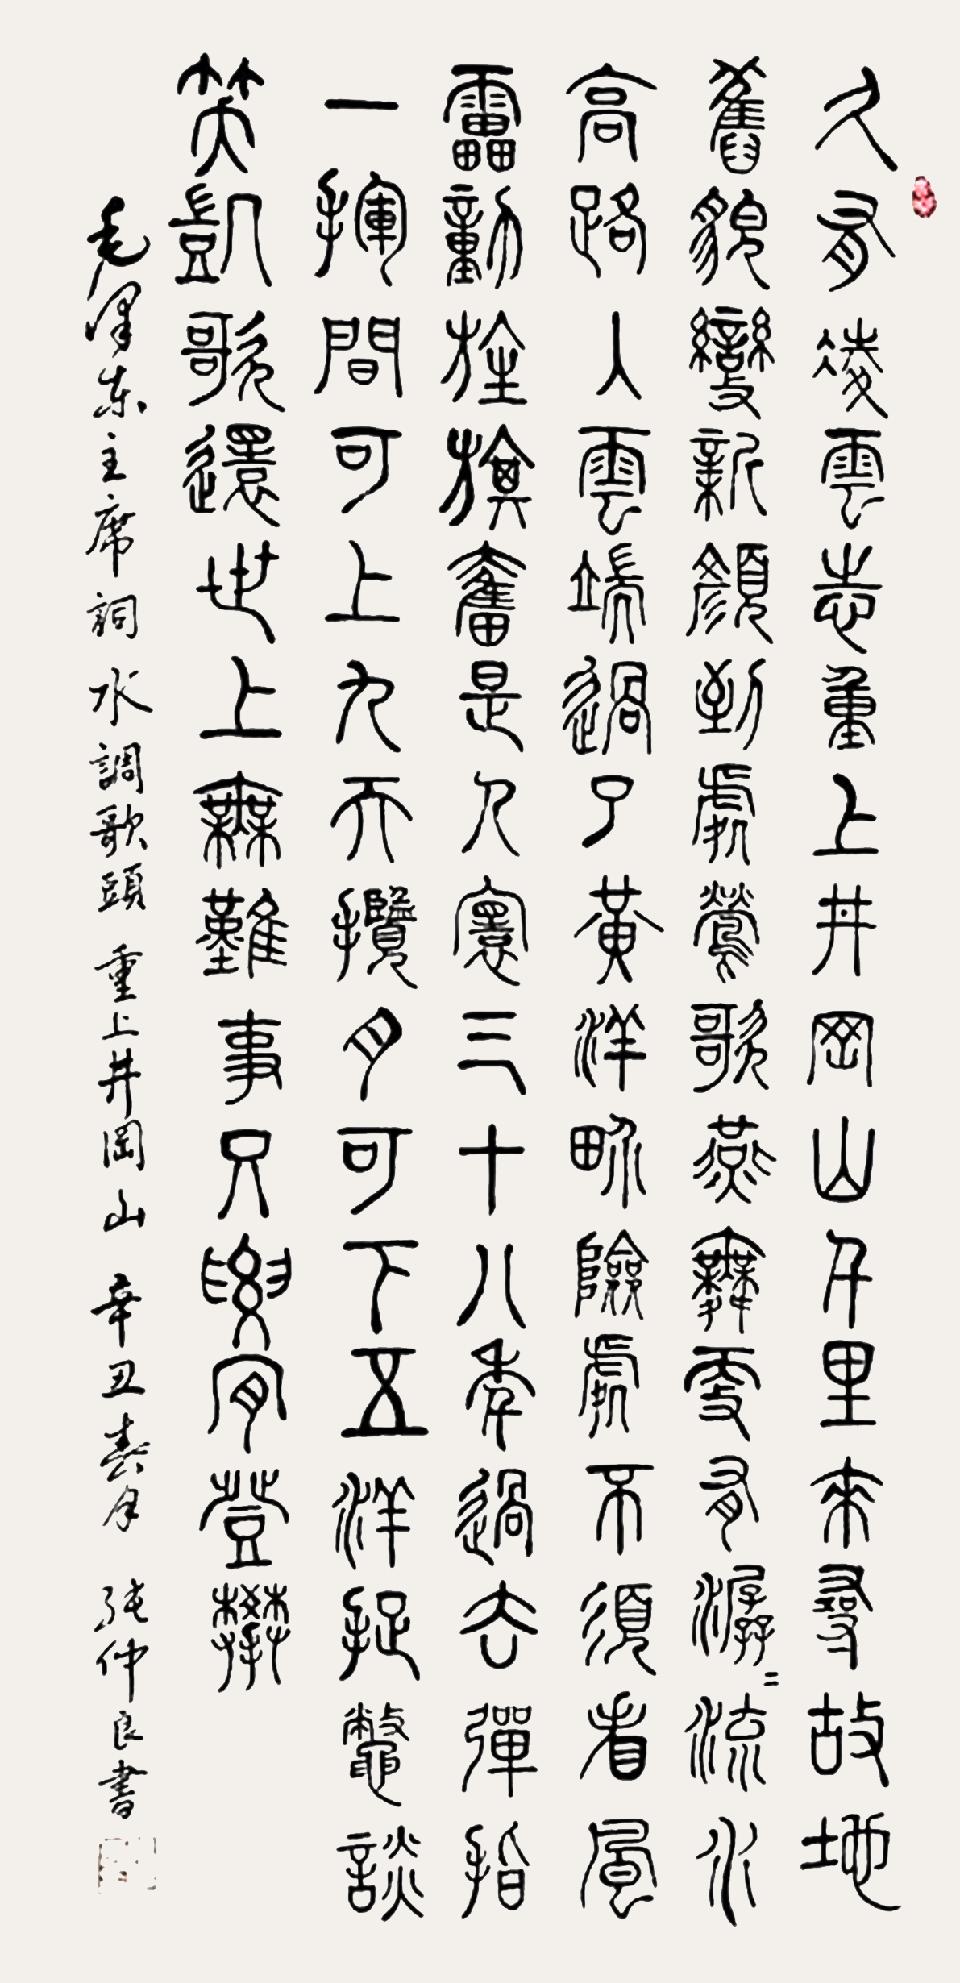 久有凌雲志重上井岡山千里來尋故地
舊貌變新顏到處鶯歌燕舞更有潺〻流水
高路入雲端過了黃洋界險處不須看風
雷動旌旗奮是人寰三十八年過去彈指
一揮間可上九天攬月可下五洋捉鱉談
笑凱歌還世上無難事只要肯登攀
毛澤東主席詞 水調歌頭 重上井岡山 辛丑春月 張仲良書